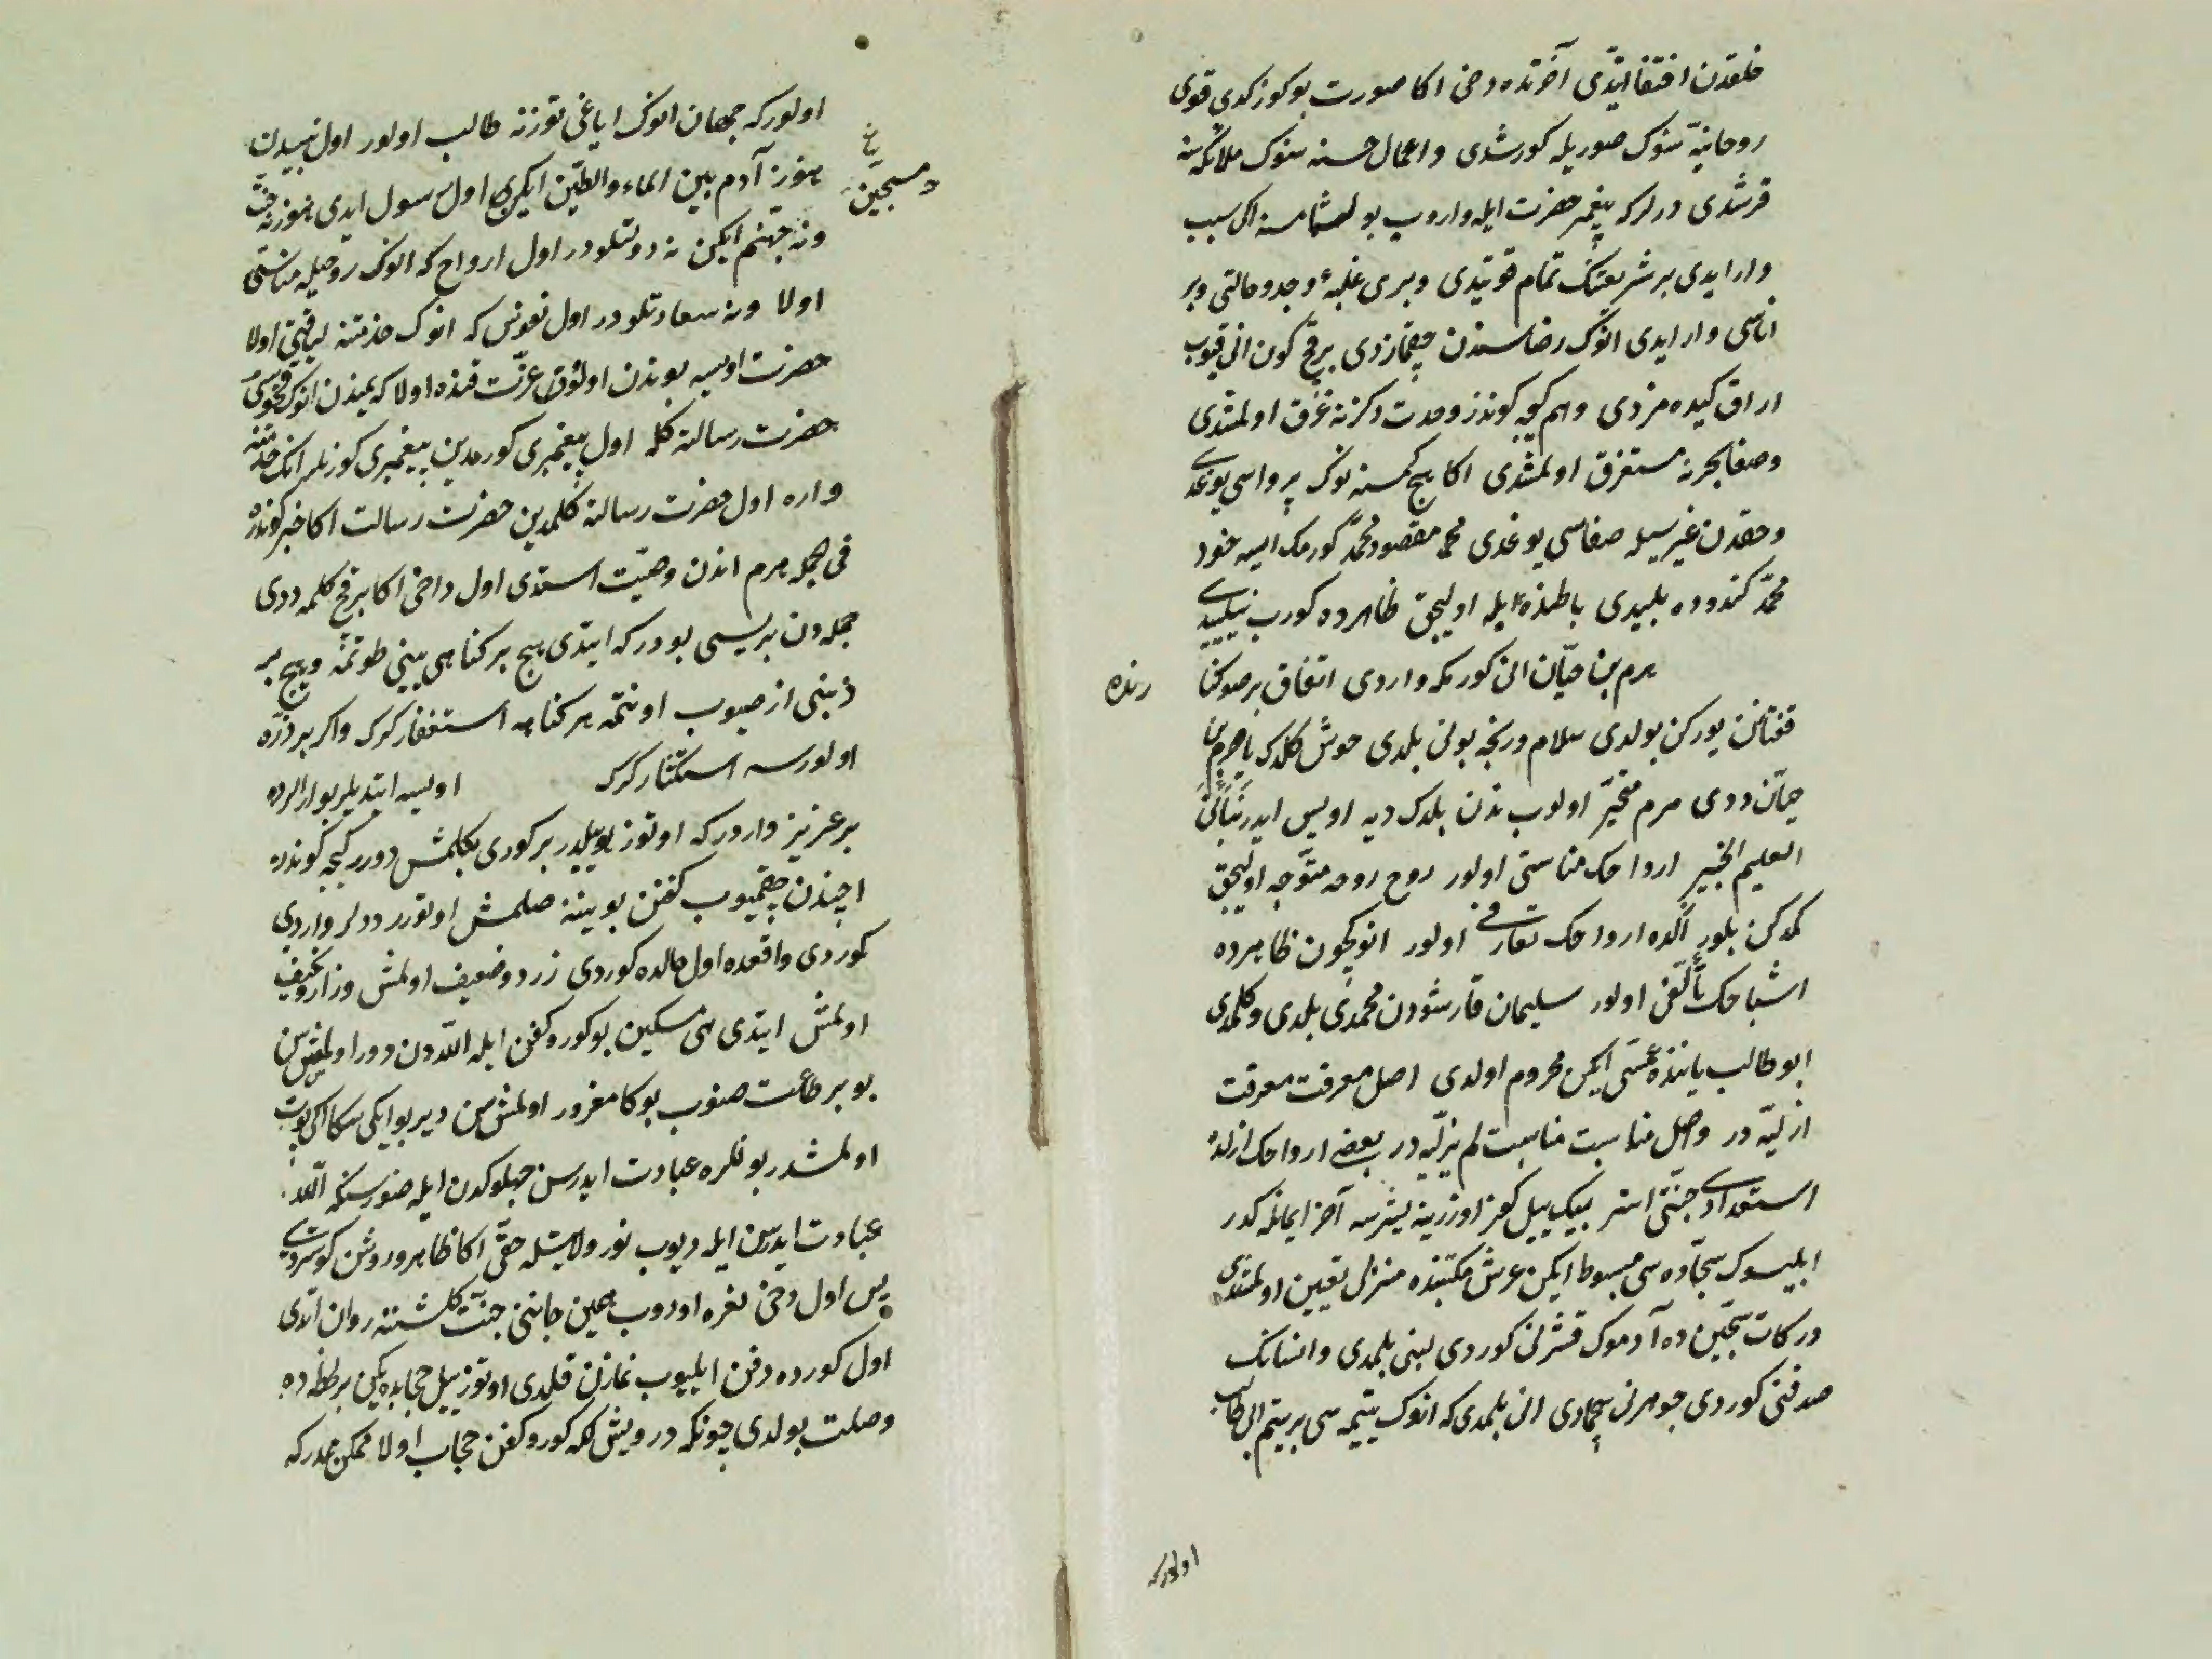 خلقدن اختفا ایتدی آخرتده دخی اکا صورت بو کوزکدی قوی
روحانیه سنوک صوریله کورشدی و اعمال حسنه سنوک ملائکه سنه
قرشدی درلر که پیغمبر حضرت ایله واروب بولشمامسنه ایکی سبب
وار ایدی بر شریعتنک تمام قوتیدی و بری غلبهٔ وجد و حالتی و بر
اناسی وار ایدی انوک رضاسندن چقمازدی بر قچ کون انی قیوب
اراق کیده مزدی و هم کیجه کوندز وحدت دکزنه غرق اولمشدی
وصفا بحرنه مستغرق اولمشدی اکا هیچ کمسنه نوک پرواسی یوغدی
وحقدن غیرسیله صفاسی یوغدی مقصود محمد کورمک ایسه خود
محمد کندوده بلیدی باطنده ایله اولیجق ظاهرده کورب نیلیدی
هرم بن حیان انی کورمکه واردی اتفاق بر صو کنا
رنده
قفتانن یورکن بولدی سلام ویرنجه بونی بلدی خوش کلدک یا هرم بن
حیان ددی هرم متحیر اولوب ندن بلدک دیه اویس ایدر نبأنی
العلیم الخبیر ارواحک مناسبتی اولور روح روحه متوجه اولیجق
کمدکن بلور اکده ارواحک تعارفی اولور انوکچون ظاهرده
اشباحک تألفی اولور سلیمان فارسدن محمدی بلدی و کلدی
ابو طالب یاننده عمسی ایکن محروم اولدی اصل معرفت معرفت
ازلیه در و اصل مناسبت مناسبت لم یزلیه در بعض ارواحک ازلده
استعدادی جنتی استر بیک ییل کفر اوزرینه یشرسه آخر ایمانله کدر
ابلیسوک سجاده سی مبسوط ایکن عرش مکتبنده منزلی تعیین اولمشدی
درکات سجین ده آدموک قشرنی کوردی لبنی بلمدی و انسانک
صدفنی کوردی جوهرنی سچمادی انی بلمدی که انوک یتیمه سی بر یتیم ابی طالب
اولورکه
اولورکه جهان انوک ایاغی توزنه طالب اولور اول نبیدن
هنوز آدم بین الماء والطین ایکن اول رسول ایدی هنوز نه جنت
و نه جهنم ایکن نه دولتلودر اول ارواح که انوک روحیله مناسبتی
اولا و نه سعادتلودر اول نفوس که انوک خدمتنه لیاقتی اولا
حضرت اویسه بوندن اولو عزت قنده اولا که یمندن انوک
حضرت رسالته کله اول پیغمبری کورمدین پیغمبری کوزلر انک خدمتنه
واره اول حضرت رسالته کلمدین حضرت رسالت اکا خبر کوندره
فی الجمله هرم اندن وصیت استدی اول داخی اکا بر قچ کلمه ددی
جمله دن بریسی بودر که ایتدی هیچ بر کناهی یینی طوتمه و هیچ بر
ذنبی از صیوب اونتمه هر کناهه استغفار کرک و اکر بر ذره
اولورسه استکثار کرک اویسه ایتدیلر بو ارالرده
بر عزیز واردر که اوتوز ییلدر بر کوری بکلمش دورر کیجه کوندز
ایچندن چقمیوب کفن بوینه صلمش اوتورر ددلر واردی
کوردی واقعده اول حالده کوردی زرد و ضعیف اولمش و زار و نحیف
اولمش ایتدی هی مسکین بو کور و کفن ایله اللهدن دور اولمش سن
بو بر طاعت صنوب بوکا مغرور اولمش سن دیر بو ایکی سکا ایکی بوت
اولمشدر بونلره عبادت ایدرسن جهلوکدن ایله صنورسنکه الله
عبادت ایدرسن ایله دیوب نور ولایتیله حقی اکا ظاهر و روشن کوستردی
پس اول دخی نعره اوروب همین جانینی جنت کلشننه روان اتدی
اول کورده دفن ایلیوب نمازن قلدی اوتوز ییل حجابده ایکن بر لحظه ده
وصلت بولدی چونکه درویش که کور و کفن حجاب اولا ممکن میدرکه